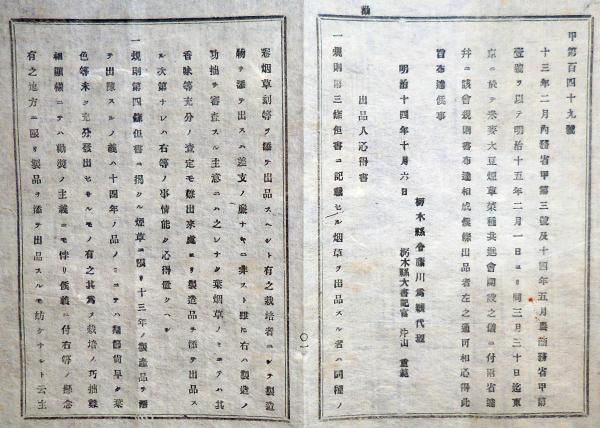 甲第百四十九號
十三年二月內務省甲第三號及十四年五月農商務省甲第
壹號ヲ以テ明治十五年二月一日ヨリ同三月三十日迄東
京ニ於テ米麥大豆烟草菜種共進會開設之儀ニ付兩省達
幷ニ該會規則書布達相成候條出品者左之通可相心得此
旨布達候事
明治十四年十月六日
栃木縣令藤川爲親代理
栃木縣大書記官 片山重範
出品人心得書
一規則第三條但書ニ記載セル烟草ヲ出品スル者ハ同種ノ
卷烟草刻等ヲ添テ出品スヘシト有之栽培者ニシテ製造
物ヲ添テ出スハ差支ノ廉ナキニ非スト雖に右ハ製造ノ
功拙ヲ審査スル主意ニハ之レナク葉烟草ノミニテハ其
香味等充分ノ査定モ難出來處ヨリ製造品ヲ添テ出品ス
ル次第ナレハ右等ノ事情能ク心得置クヘシ
一規則第四條但書ニ揭クル煙草ニ限リ十三年ノ製產品ヲ
テ出陳スルノ義ハ十四年ノ品ノミニテハ
色等未タ充分發出セサルモノ有之其爲メ栽培ノ巧拙難
相顯樣ニテハ勸奬ノ主義ニモ悖リ候義ニ付右等ノ懸念
有之地方ニ限リ製品ヲ添テ出品スルモ妨ケナルト云主
〇一